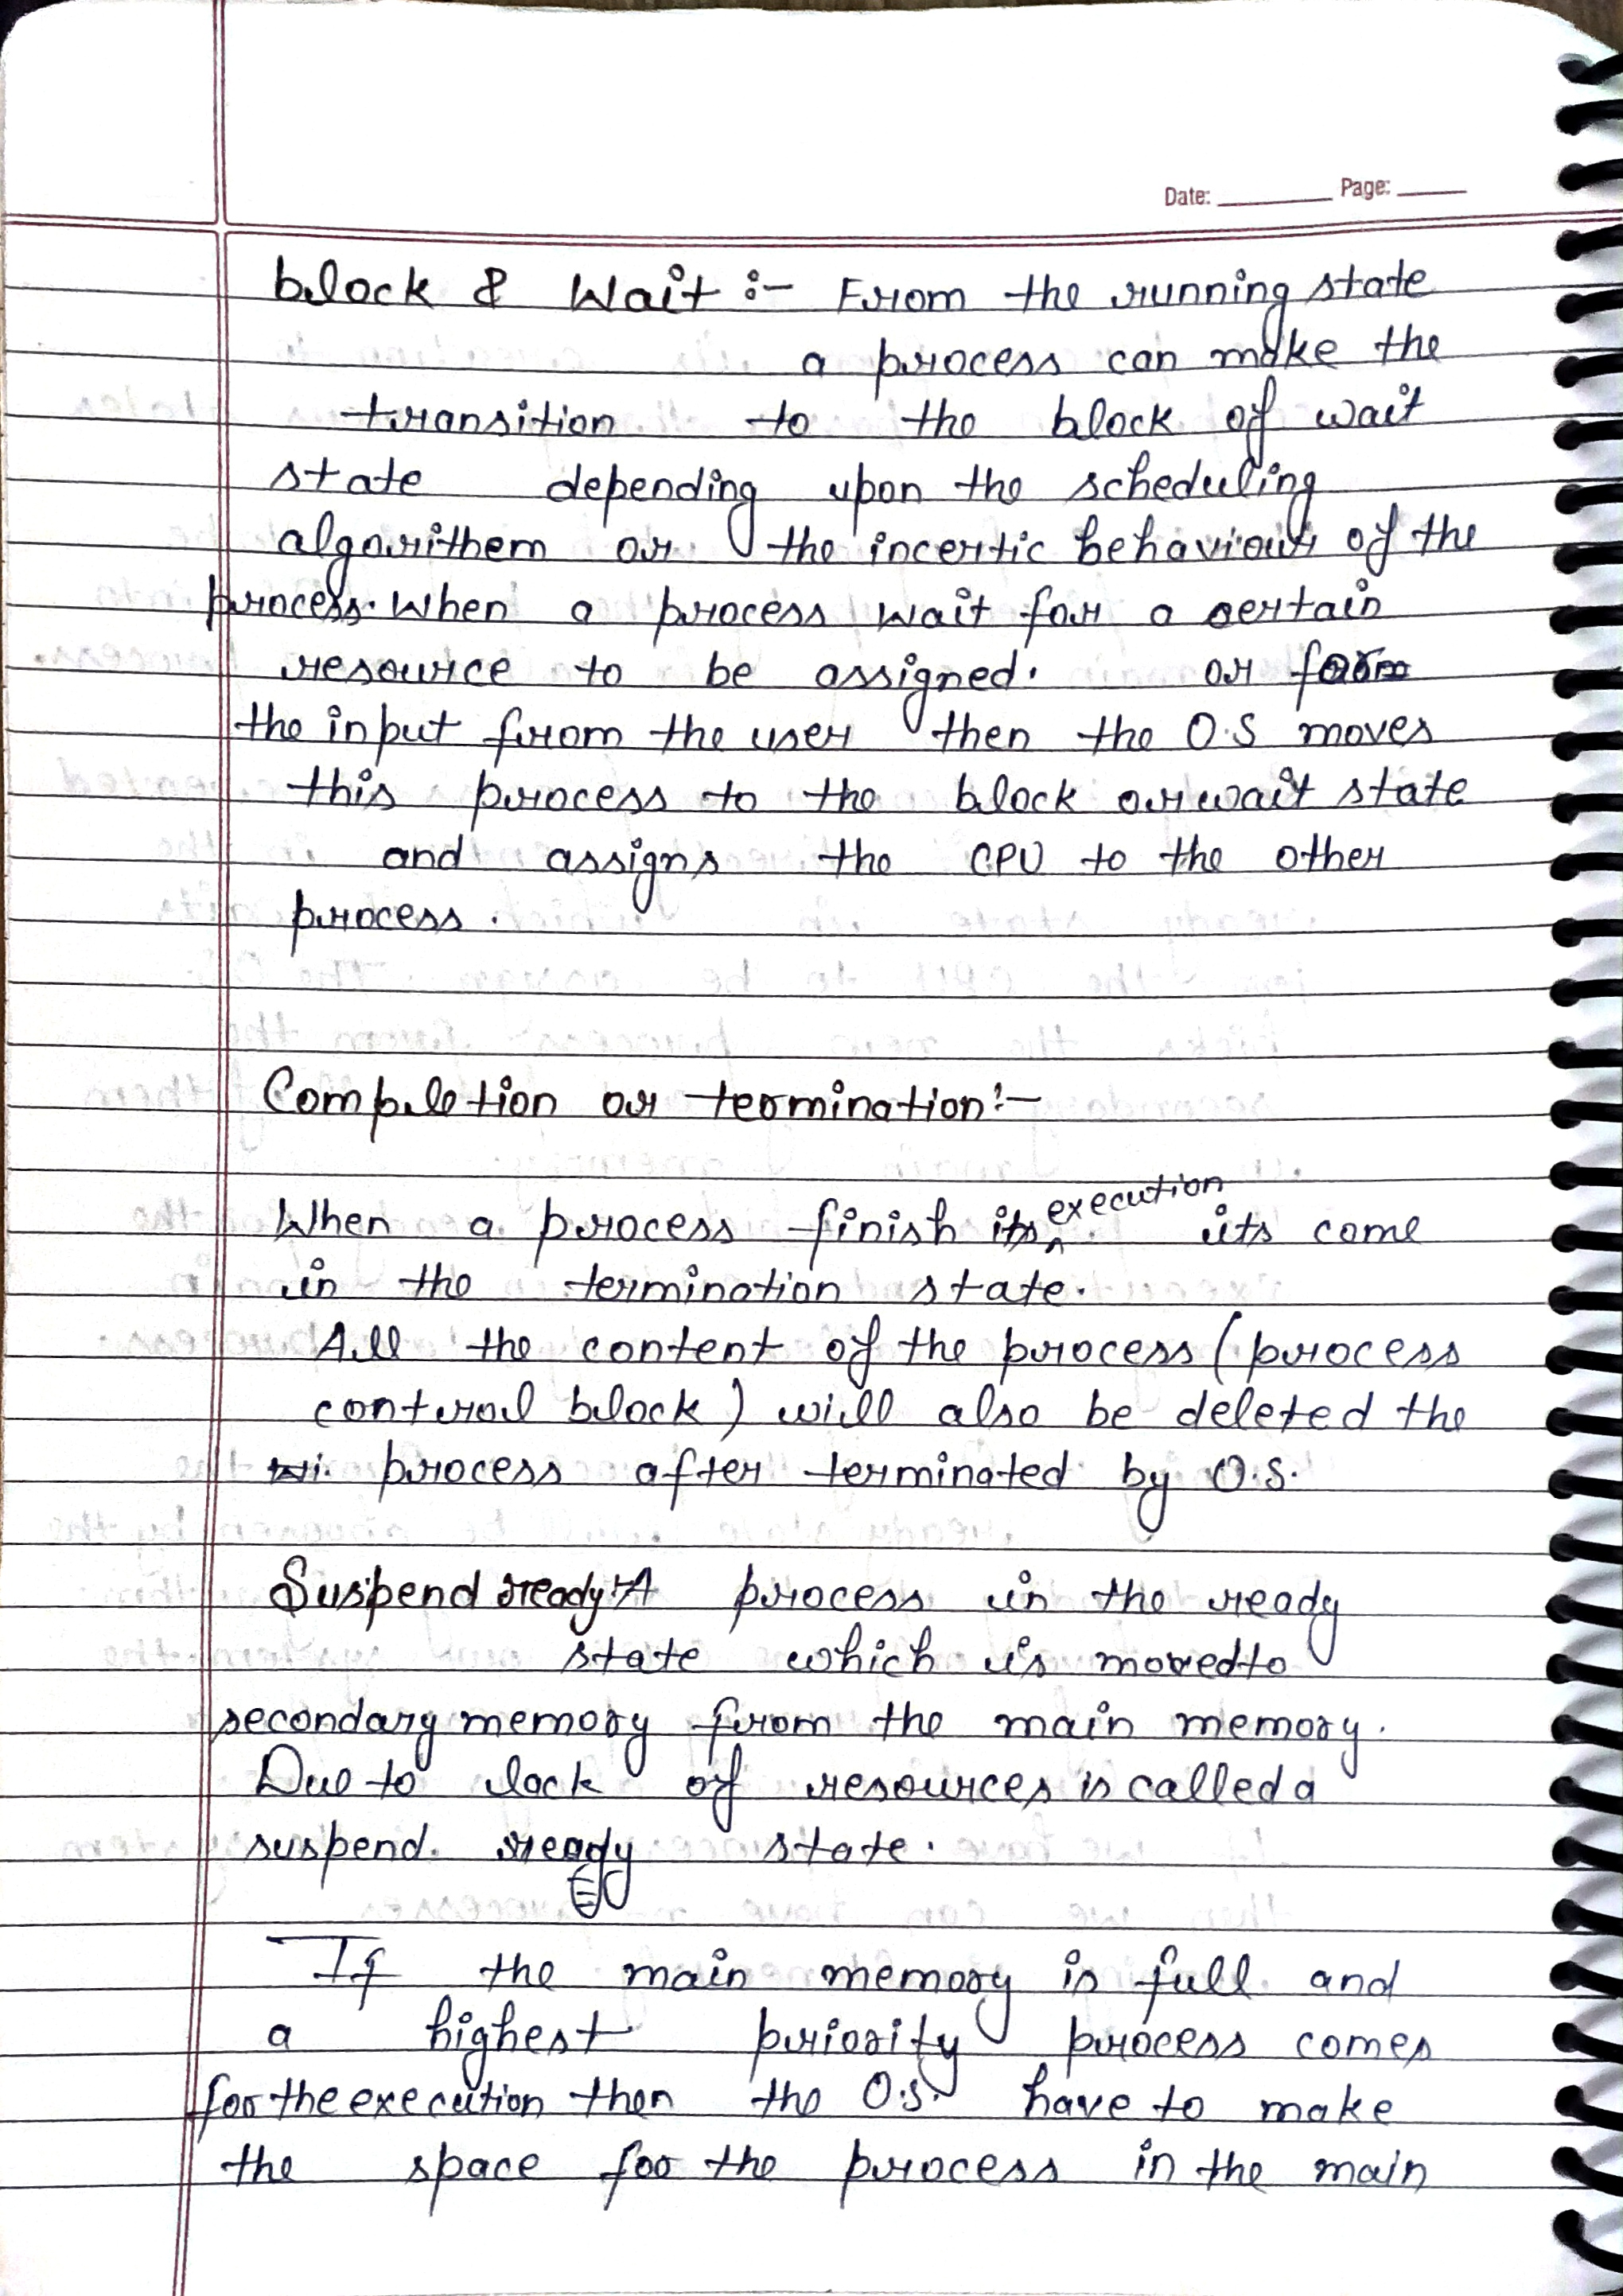 Date: ______ Page: ____
block & Wait :- From the running state
a process can make the
transition to the block of wait
state depending upon the scheduling
algorithem or the incertic behaviour of the
process. When a process wait for a certain
resource to be assigned. or from
the input from the user then the O.S moves
this process to the block or wait state
and assigns the CPU to the other
process.
Completion or termination:-
When a process finish its execution its come
in the termination state.
All the content of the process (process
control block) will also be deleted the
process after terminated by O.S.
Suspend ready:- A process in the ready
state which is moved to
secondary memory from the main memory.
Due to lack of resources is called a
suspend. ready state.
If the main memory is full and
a highest priority process comes
for the execution then the O.S. have to make
the space for the process in the main